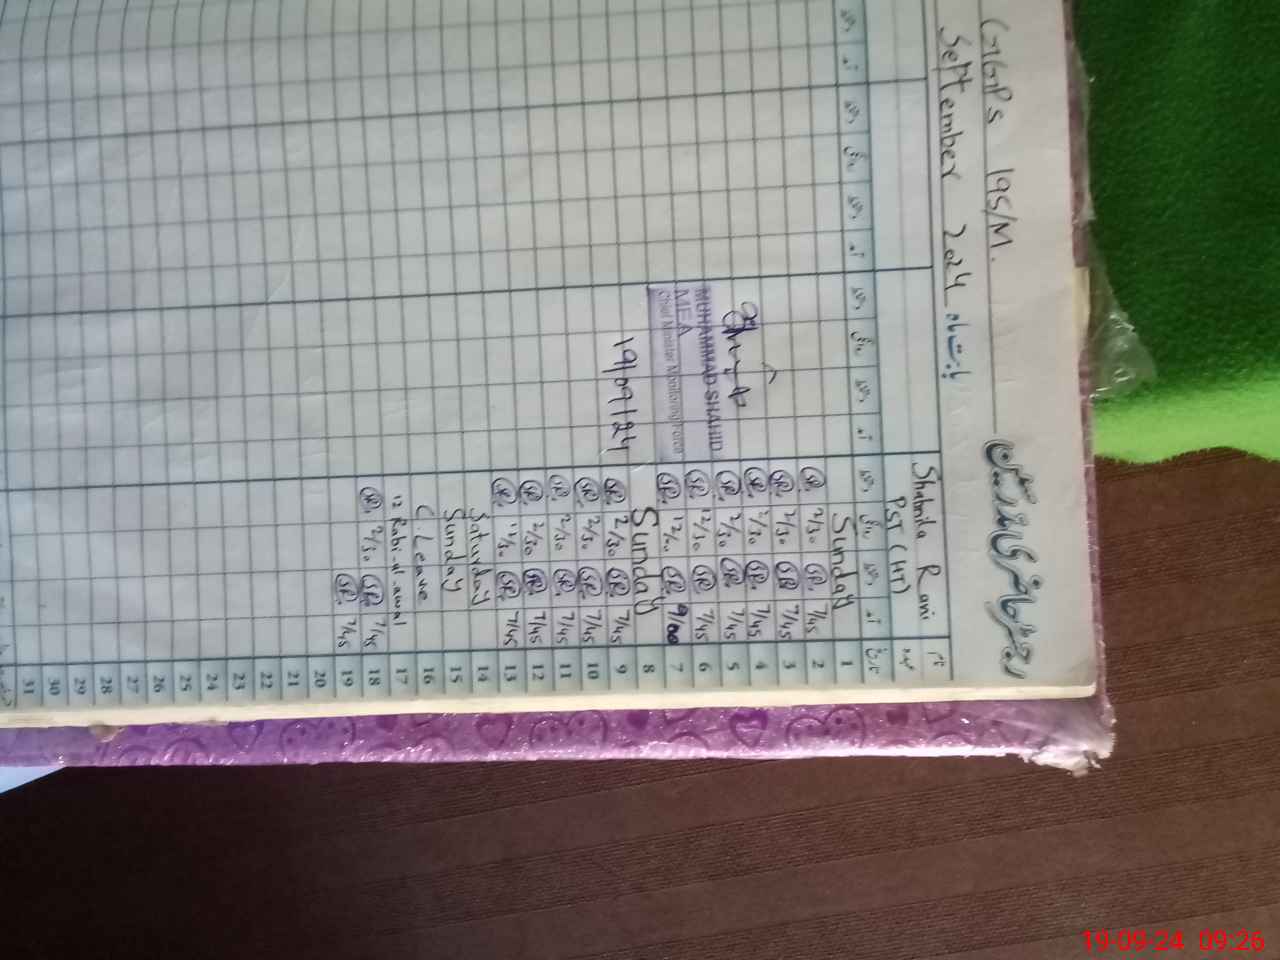 رجسٹر حاضری مدرسین
GGPS 195/M.
September 2024 بابت ماہ
نام Shabnila Rani
عہدہ PST (HT)
تاریخ آمد دستخط روانگی دستخط آمد دستخط روانگی دستخط آمد دستخط روانگی دستخط آمد دستخط
1 Sunday
2 7/45 SR. 2/30 SR.
3 7/45 SR. 2/30 SR.
4 7/45 SR. 2/30 SR.
5 7/45 SR. 2/30 SR.
6 7/45 SR. 12/30 SR.
7 9/00 SR. 12/00 SR.
8 Sunday
9 7/45 SR. 2/30 SR.
10 7/45 SR. 2/30 SR.
11 7/45 SR. 2/30 SR.
12 7/45 SR. 2/30 SR.
13 7/45 SR. 11/30 SR.
14 Saturday
15 Sunday
16 C. Leave
17 12 Rabi-ul-awal
18 7/45 SR. 2/30 SR.
19 7/45 SR.
20
21
22
23
24
25
26
27
28
29
30
31
MUHAMMAD SHAHID
MEA
Chief Minister Monitoring Force
19/09/24
19-09-24 09:26